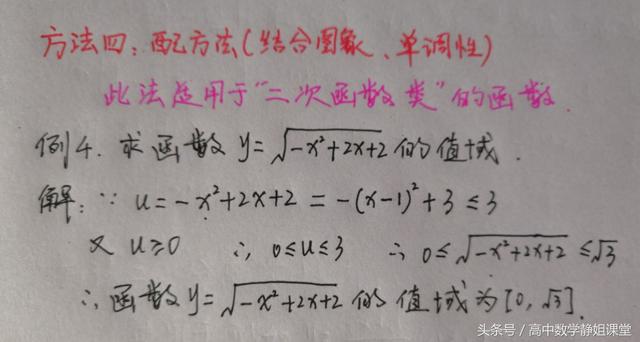 方法四：配方法(结合图象、单调性)
此法适用于“二次函数类”的函数.
例4. 求函数 y=√(-x²+2x+2) 的值域.
解：∵ u=-x²+2x+2 = -(x-1)²+3 ≤3
又 u≥0 ∴ 0≤u≤3 ∴ 0≤√(-x²+2x+2) ≤√3
∴函数y=√(-x²+2x+2) 的值域为[0, √3].
头条号 / 高中数学静姐课堂